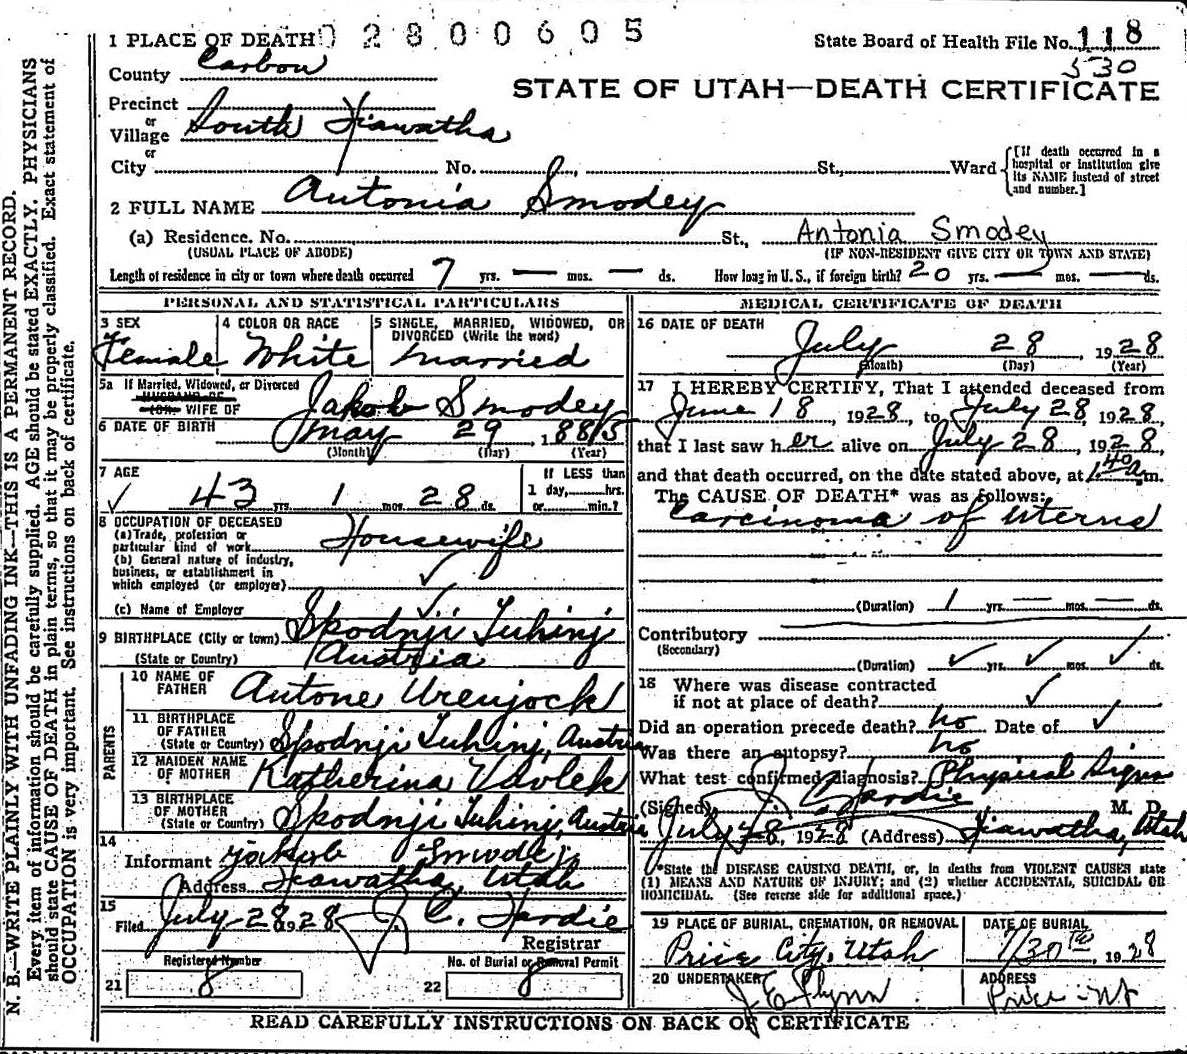 1 PLACE OF DEATH 0 2 8 0 0 6 0 5
State Board of Health File No. 118
530
County Carbon
STATE OF UTAH—DEATH CERTIFICATE
Precinct
or
Village South Hiawatha
or
City No. St., Ward
[If death occurred in a hospital or institution give its NAME instead of street and number.]
2 FULL NAME Antonia Smodey
(a) Residence. No. St., Antonia Smodey
(USUAL PLACE OF ABODE) (IF NON-RESIDENT GIVE CITY OR TOWN AND STATE)
Length of residence in city or town where death occurred 7 yrs. — mos. — ds. How long in U. S., if foreign birth? 20 yrs. — mos. — ds.
PERSONAL AND STATISTICAL PARTICULARS
3 SEX
Female
4 COLOR OR RACE
White
5 SINGLE, MARRIED, WIDOWED, OR DIVORCED (Write the word)
Married
5a If Married, Widowed, or Divorced
HUSBAND OF
(OR) WIFE OF Jakob Smodey
6 DATE OF BIRTH May 29, 1885
(Month) (Day) (Year)
7 AGE
43 yrs. 1 mos. 28 ds.
If LESS than
1 day, hrs.
or min.?
8 OCCUPATION OF DECEASED
(a) Trade, profession or
particular kind of work Housewife
(b) General nature of industry,
business, or establishment in
which employed (or employer)
(c) Name of Employer
9 BIRTHPLACE (City or town) Spodnji Tuhinj
(State or Country) Austria
PARENTS
10 NAME OF FATHER Antone Urenjock
11 BIRTHPLACE OF FATHER
(State or Country) Spodnji Tuhinj, Austria
12 MAIDEN NAME OF MOTHER Katherina
13 BIRTHPLACE OF MOTHER
(State or Country) Spodnji Tuhinj, Austria
14
Informant Jakob Smodej
Address Hiawatha, Utah
15
Filed July-28 1928 J. C. Hardie
Registrar
21 Registered Number 8
22 No. of Burial or Removal Permit 8
MEDICAL CERTIFICATE OF DEATH
16 DATE OF DEATH
July 28, 1928
(Month) (Day) (Year)
17 I HEREBY CERTIFY, That I attended deceased from
June 18, 1928, to July 28, 1928,
that I last saw her alive on July 28, 1928,
and that death occurred, on the date stated above, at 1.40 a m.
The CAUSE OF DEATH* was as follows:
Carcinoma of uterus
(Duration) 1 yrs. — mos. — ds.
Contributory
(Secondary)
(Duration) yrs. mos. ds.
18 Where was disease contracted
if not at place of death?
Did an operation precede death? no Date of
Was there an autopsy? no
What test confirmed diagnosis? Physical Signs
(Signed) J. C. Hardie M. D.
July 28, 1928 (Address) Hiawatha, Utah
*State the DISEASE CAUSING DEATH, or, in deaths from VIOLENT CAUSES state
(1) MEANS AND NATURE OF INJURY; and (2) whether ACCIDENTAL, SUICIDAL OR
HOMICIDAL. (See reverse side for additional space.)
19 PLACE OF BURIAL, CREMATION, OR REMOVAL
Price City, Utah
DATE OF BURIAL
7/30th, 1928
20 UNDERTAKER
J E Flynn
ADDRESS
Price - Ut
READ CAREFULLY INSTRUCTIONS ON BACK OF CERTIFICATE
N. B.—WRITE PLAINLY WITH UNFADING INK—THIS IS A PERMANENT RECORD.
Every item of information should be carefully supplied. AGE should be stated EXACTLY. PHYSICIANS
should state CAUSE OF DEATH in plain terms, so that it may be properly classified. Exact statement of
OCCUPATION is very important. See instructions on back of certificate.